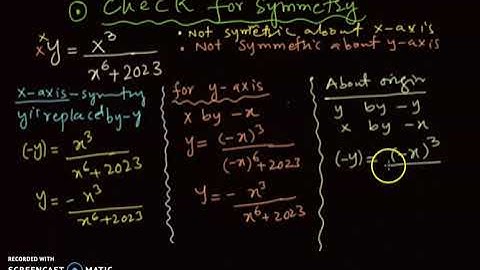 ⊙ Check for symmetry
x x y = x³ / x⁶+2023
• Not symetric about x-axis
• Not Symmetric about y-axis
x-axis-symtry
y is replaced by -y
(-y) = x³ / x⁶+2023
y = - x³ / x⁶+2023
for y-axis
x by -x
y = (-x)³ / (-x)⁶+2023
y = - x³ / x⁶+2023
About origin
y by -y
x by -x
(-y) = (-x)³
RECORDED WITH
SCREENCAST MATIC